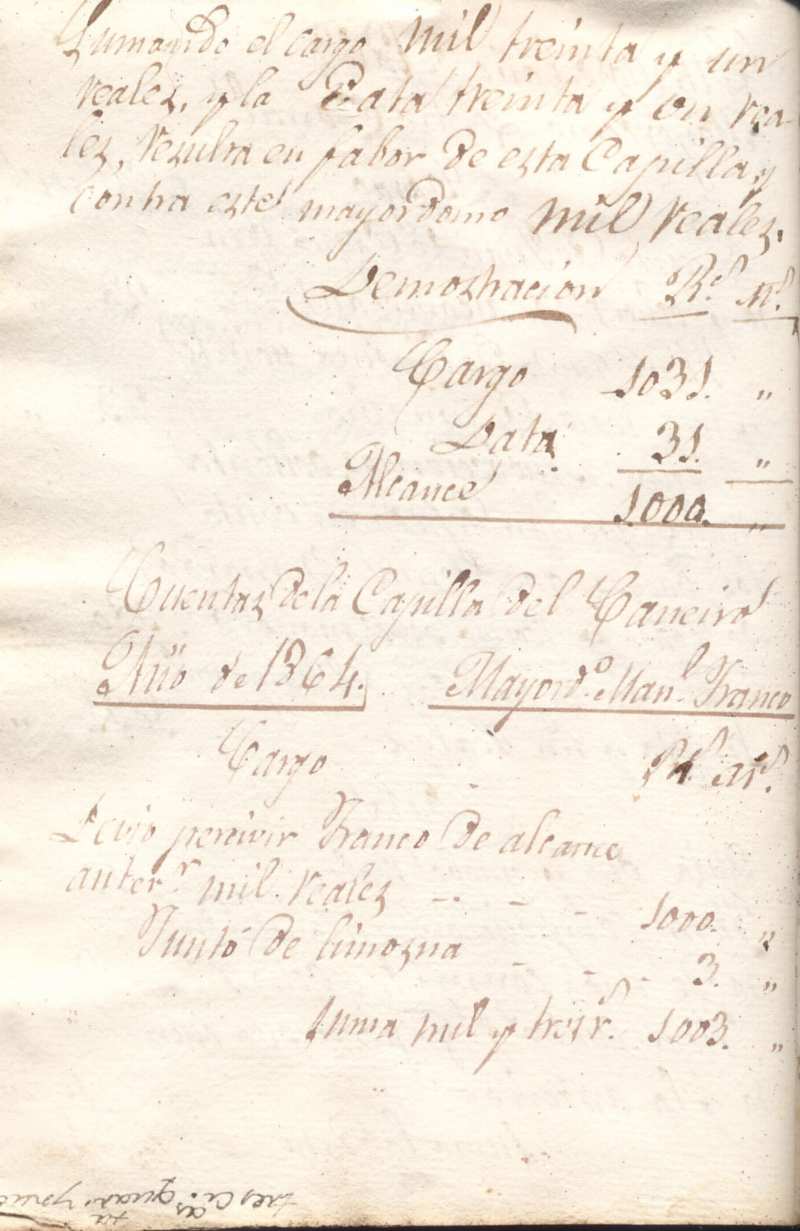 Sumando el cargo mil treinta y un
reales, y la Data treinta y un rea-
les, resulta en fabor de esta Capilla, y
contra este mayordomo mil reales.
Demostracion R.s M.s
Cargo 1031. „
Data. 31. „
Alcance 1000. „
Cuentas de la Capilla del Caneiro
Año de 1864. Mayord.o Man.l Franco
Cargo R.s M.s
Devio percivir Franco de alcance
anter.r mil reales - - - - 1000. „
Juntó de limosna - - - 3. „
Suma mil y tres r.s 1003. „